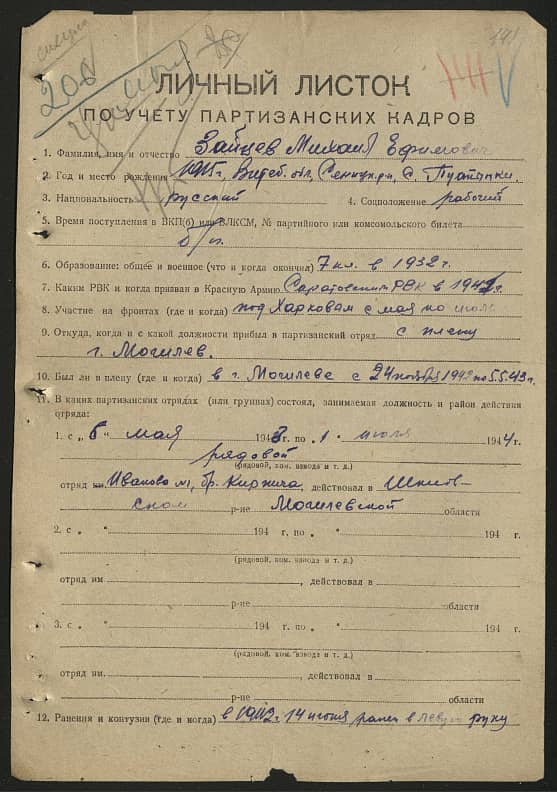 200
ЛИЧНЫЙ ЛИСТОК
ПО УЧЕТУ ПАРТИЗАНСКИХ КАДРОВ
1. Фамилия, имя и отчество Зайцев Михаил Ефимович
2. Год и место рождения 1915 г, Витеб. обл, Сеннин. р-н, д.
3. Национальность русский 4. Соцположение рабочий
5. Время поступления в ВКП(б) или ВЛКСМ, № партийного или комсомольского билета
б/п.
6. Образование: общее и военное (что и когда окончил) 7 кл. в 1932 г.
7. Каким РВК и когда призван в Красную Армию Саратовским РВК в 1942 г.
8. Участие на фронтах (где и когда) под Харковам с мая по июль
9. Откуда, когда и с какой должности прибыл в партизанский отряд с плену
г. Могилев.
10. Был ли в плену (где и когда) в г. Могилеве с 24 ноября 1942 по 5.5.43 г.
11. В каких партизанских отрядах (или группах) состоял, занимаемая должность и район действия
отряда:
1. с „ 6 " мая 1943 г. по „ 1 " июля 1944 г.
рядовой
(рядовой, ком. взвода и т. д.)
отряд им. Иваново м, бр. Кирпича, действовал в Шклов-
ском р-не Могилевской области
2. с „ " 194 г. по „ " 194 г.
(рядовой, ком. взвода и т. д.)
отряд им. , действовал в
р-не области
3. с „ " 194 г. по „ " 194 г.
(рядовой, ком. взвода и т. д.)
отряд им. , действовал в
р-не области
12. Ранения и контузии (где и когда) в 1942 г. 14 июня ранен в левую руку